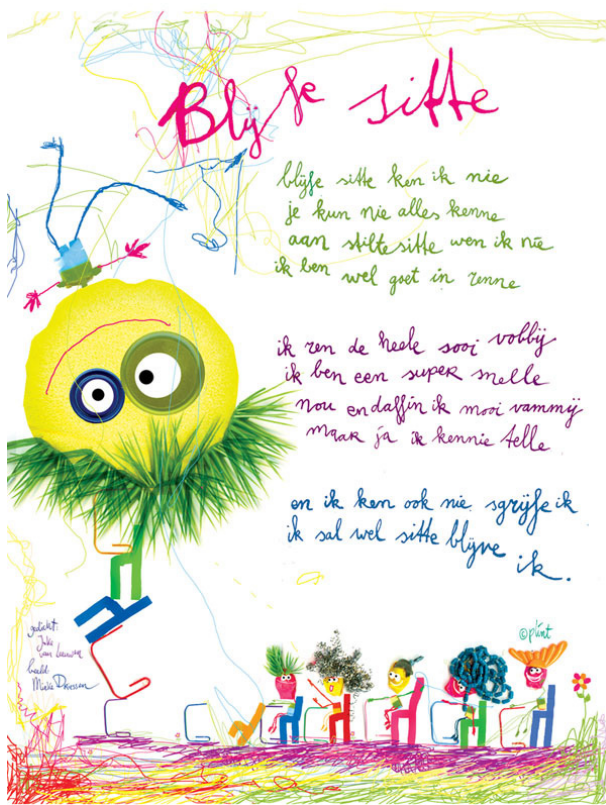 Blijfe sitte
blijfe sitte ken ik nie
je kun nie alles kenne
aan stiltesitte wen ik nie
ik ben wel goet in renne
ik ren de heele sooi vobbij
ik ben een super snelle
nou en daffin ik mooi vammij
maar ja ik kennie telle
en ik ken ook nie sgrijfe ik
ik sal wel sitte blijve ik.
gedicht:
Joke
van Leeuwen
beeld
Mieke Driessen
©plint